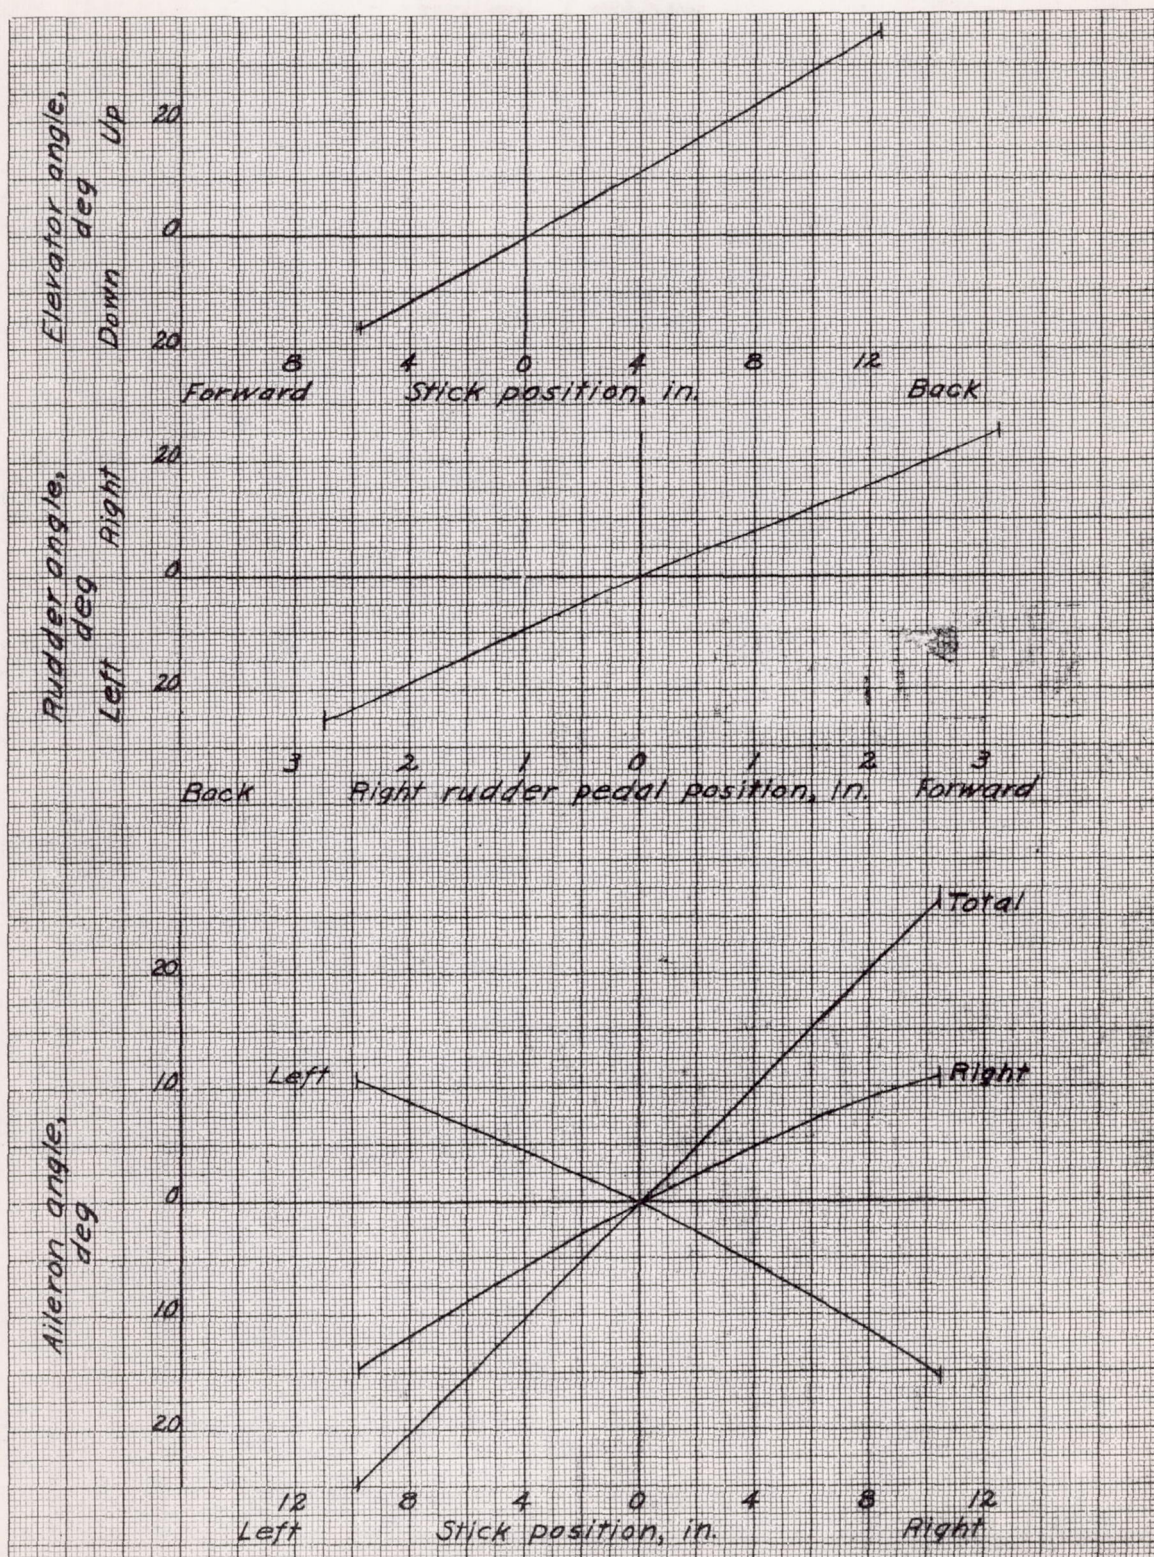 Elevator angle,
deg
Down Up
20
0
20
8 4 0 4 8 12
Forward Stick position, in. Back
Rudder angle,
deg
Left Right
20
0
20
3 2 1 0 1 2 3
Back Right rudder pedal position, in. Forward
Aileron angle,
deg
Total
20
10 Left Right
0
10
20
12 8 4 0 4 8 12
Left Stick position, in. Right